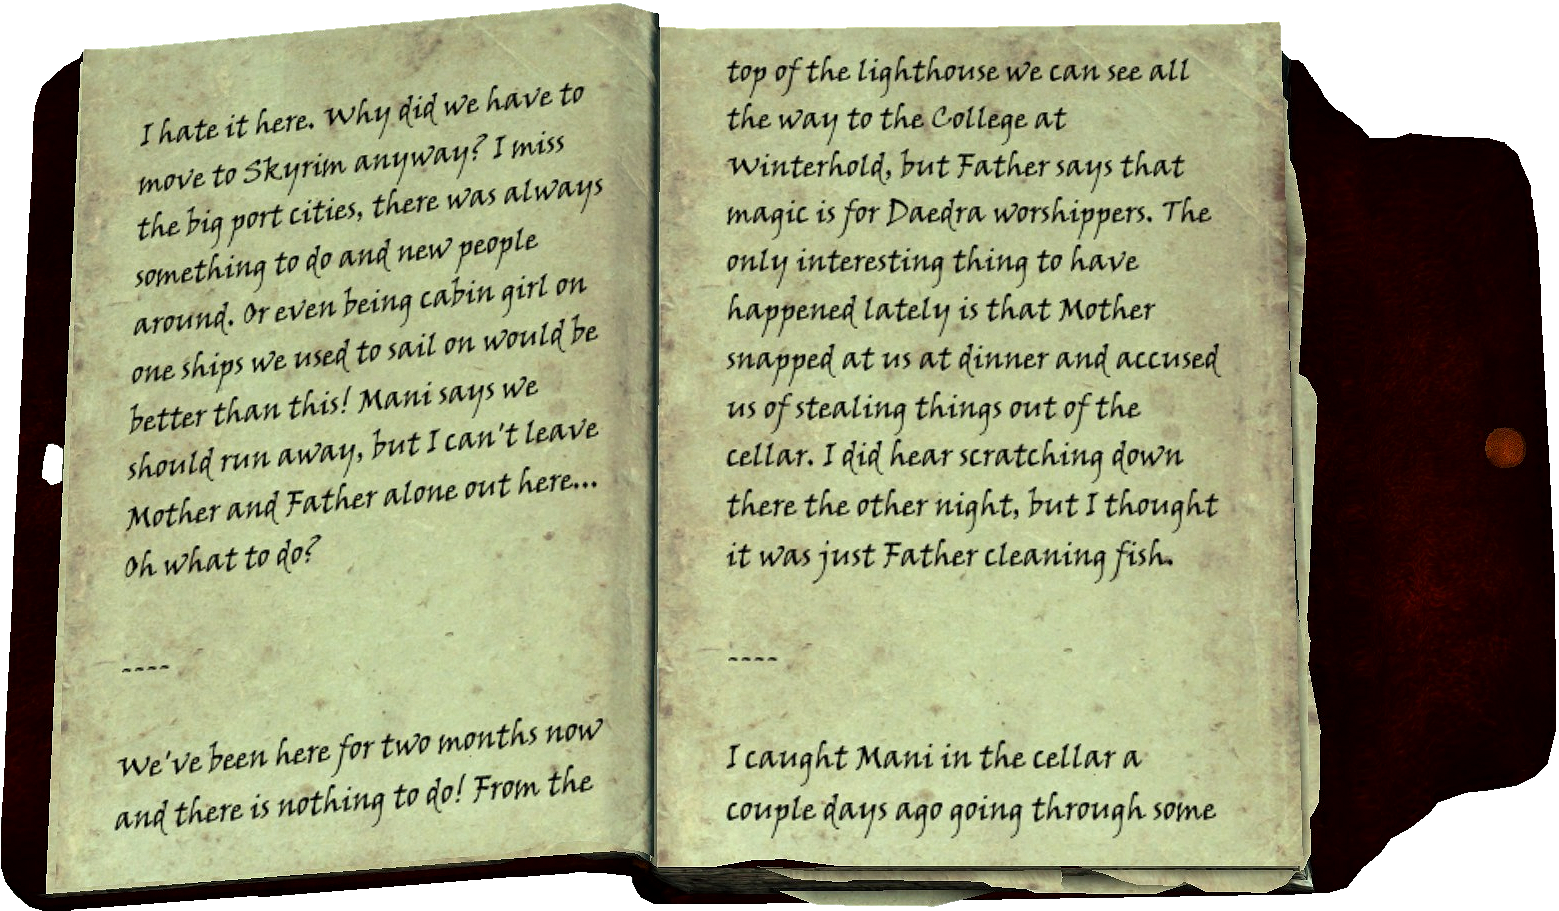 I hate it here. Why did we have to
move to Skyrim anyway? I miss
the big port cities, there was always
something to do and new people
around. Or even being cabin girl on
one ships we used to sail on would be
better than this! Mani says we
should run away, but I can't leave
Mother and Father alone out here...
Oh what to do?
----
We've been here for two months now
and there is nothing to do! From the
top of the lighthouse we can see all
the way to the College at
Winterhold, but Father says that
magic is for Daedra worshippers. The
only interesting thing to have
happened lately is that Mother
snapped at us at dinner and accused
us of stealing things out of the
cellar. I did hear scratching down
there the other night, but I thought
it was just Father cleaning fish.
----
I caught Mani in the cellar a
couple days ago going through some